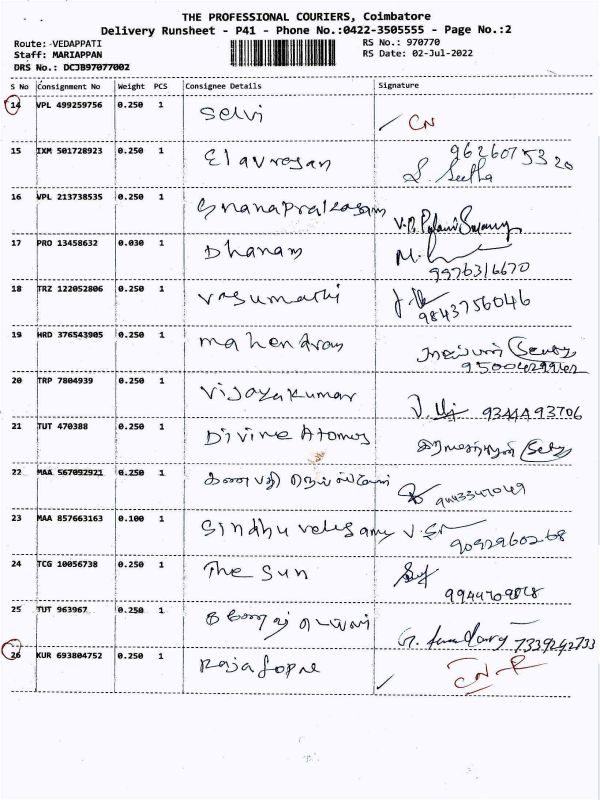 THE PROFESSIONAL COURIERS, Coimbatore
Delivery Runsheet - P41 - Phone No.:0422-3505555 - Page No.:2
Route: -VEDAPPATI RS No.: 970770
Staff: MARIAPPAN RS Date: 02-Jul-2022
DRS No.: DCJB97077002
S No Consignment No Weight PCS Consignee Details Signature
14 VPL 499259756 0.250 1 Selvi CN
15 IXM 501728923 0.250 1 Elavrasan 9626075320
S. Seetha
16 VPL 213738535 0.250 1 Gnanaprakasam
17 PRO 13458632 0.030 1 Dhanam
9976316670
18 TRZ 122052806 0.250 1 Vasumathi
9843756046
19 HRD 376543905 0.250 1 mahendran
20 TRP 7804939 0.250 1 Vijayakumar 9344493706
21 TUT 470388 0.250 1 Divine Atomos
22 MAA 567092921 0.250 1 கணபதி
23 MAA 857663163 0.100 1 Sindhu velusamy
9092960268
24 TCG 10056738 0.250 1 The Sun
25 TUT 963967 0.250 1
7339242733
26 KUR 693804752 0.250 1 Rajagopal CN-R